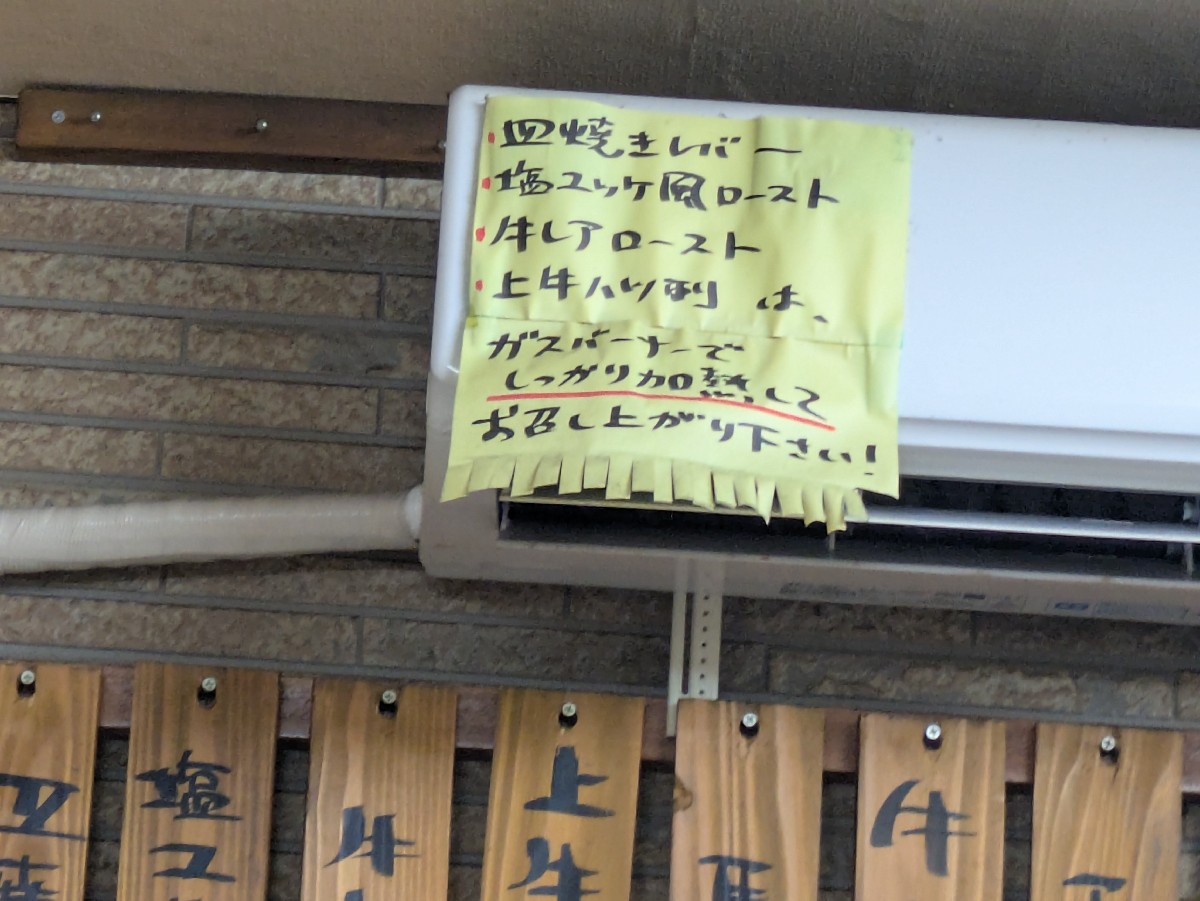 ・皿焼きレバー
・塩ユッケ風ロースト
・牛レアロースト
・上牛ハツ刺 は、
ガスバーナーで
しっかり加熱して
お召し上がり下さい!
塩ユ
牛
上牛
牛